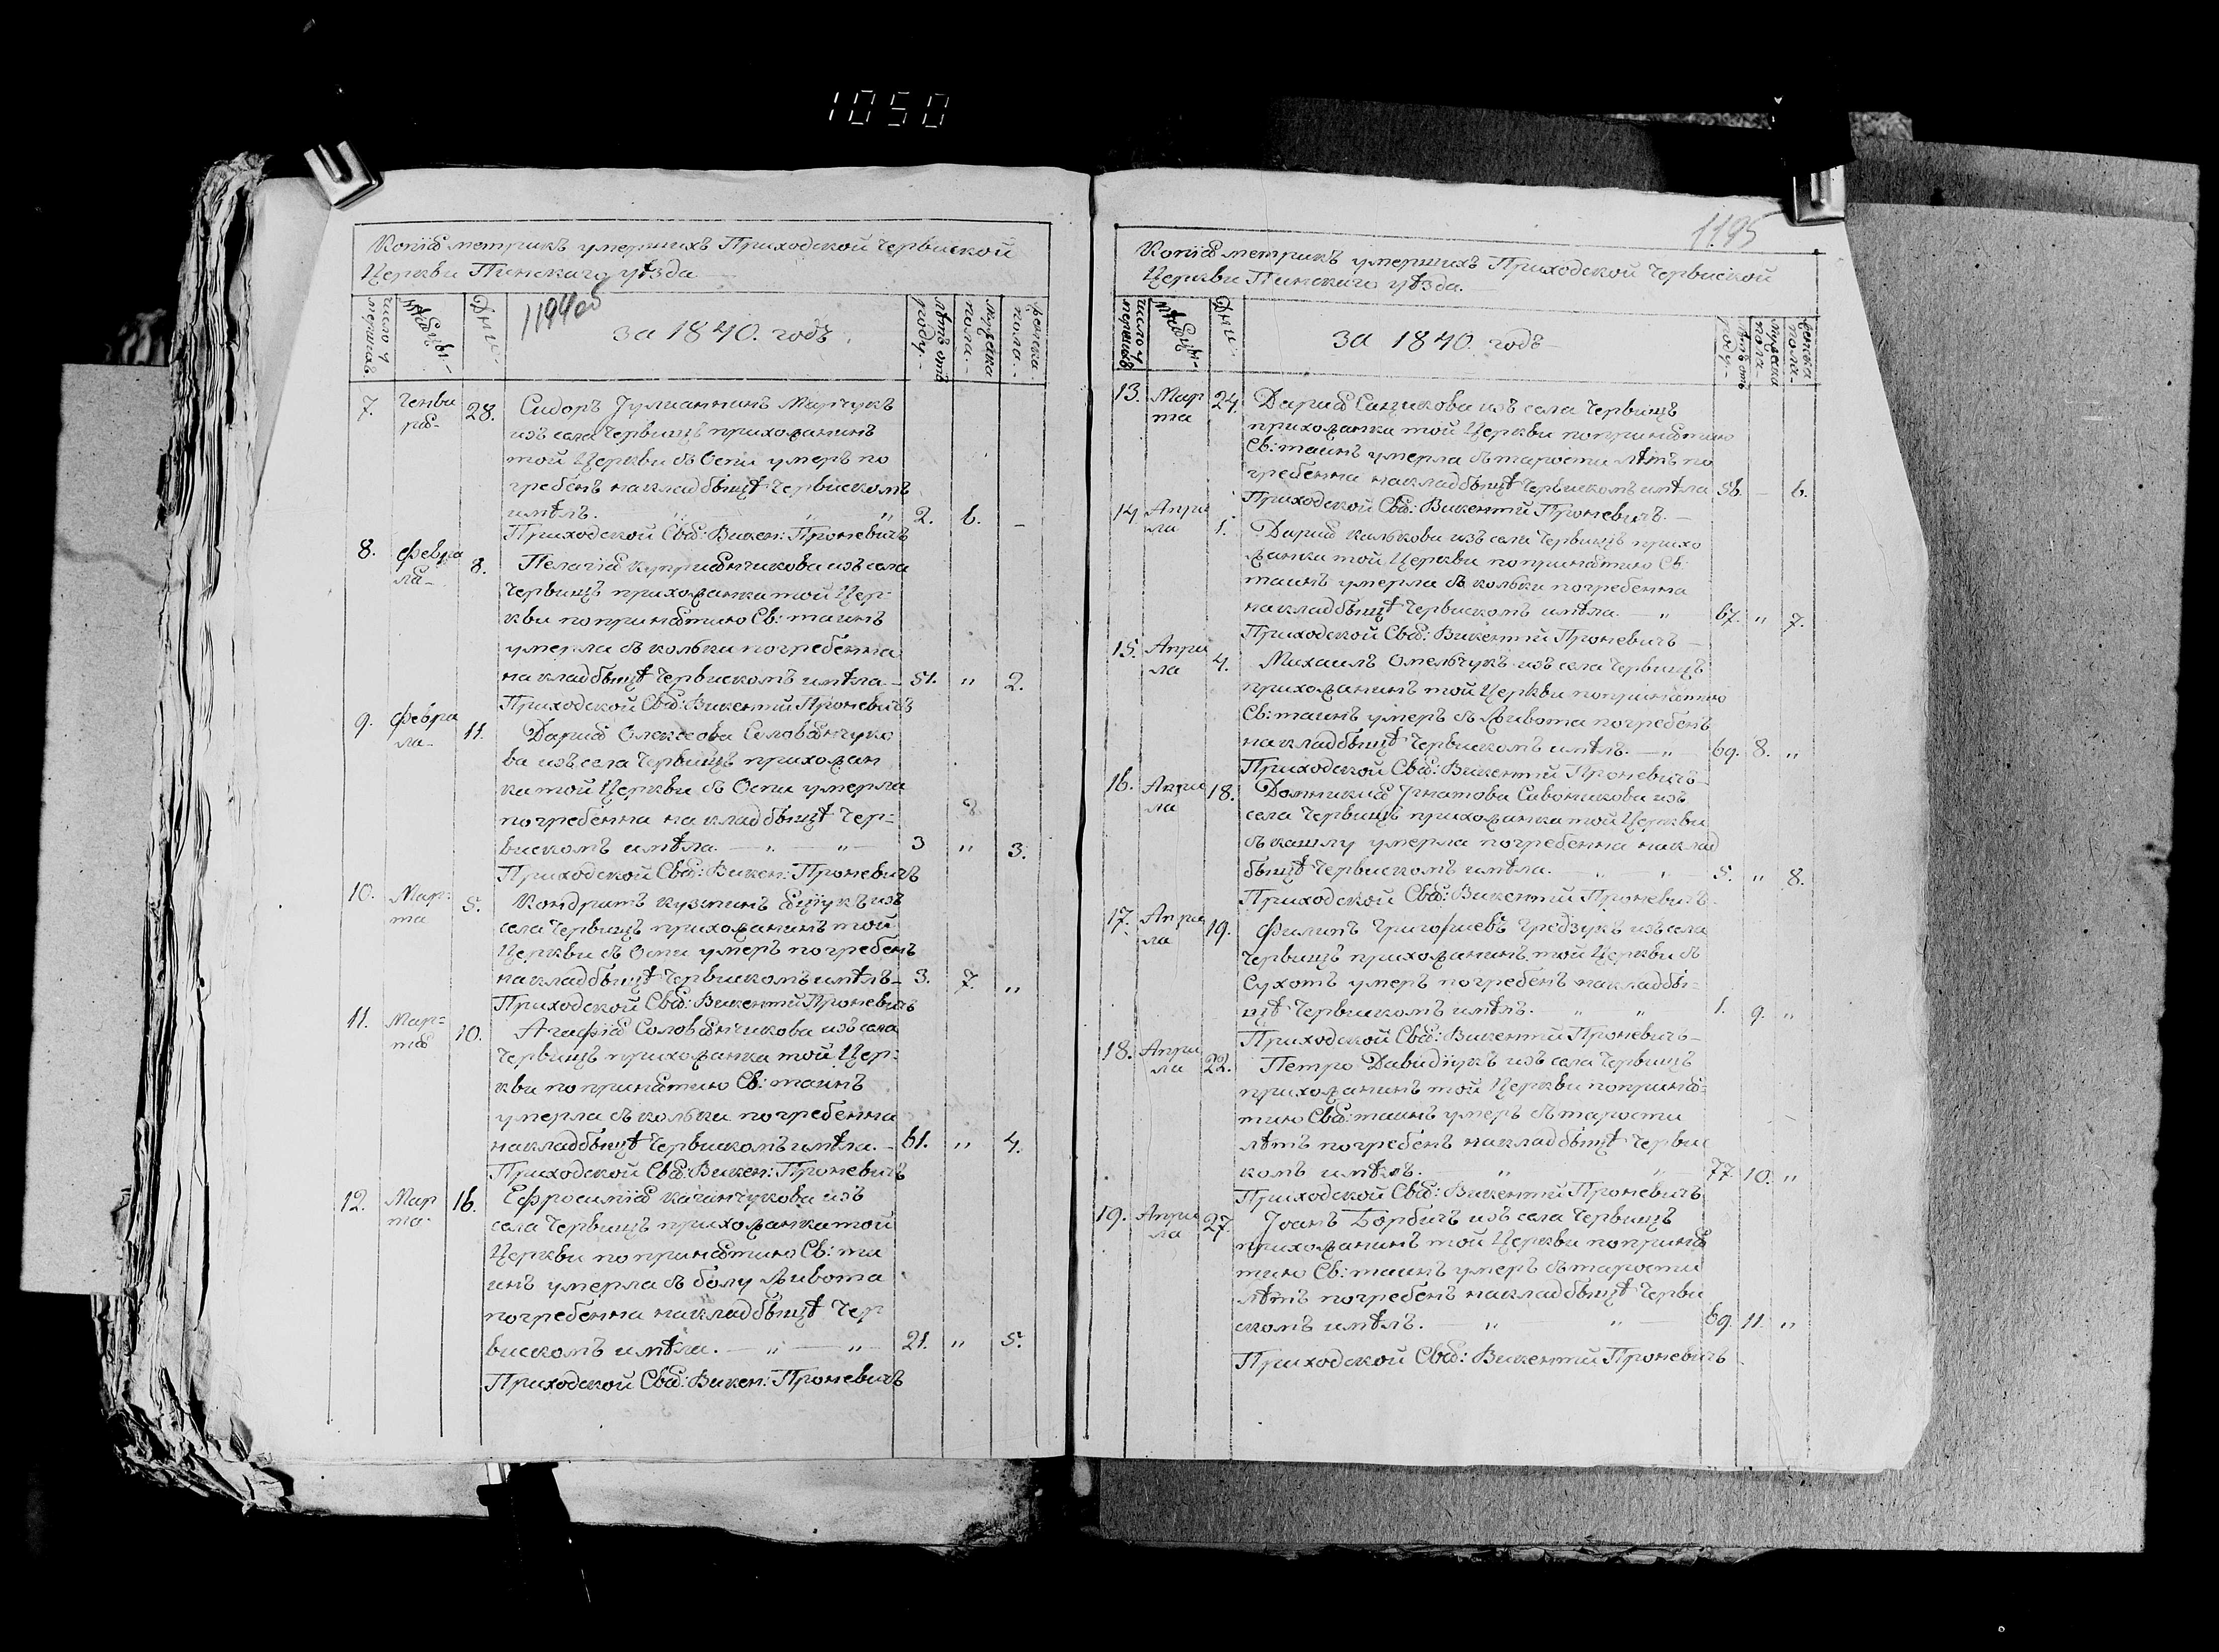 1050
Копія метрикъ умершихъ Приходской Червиской
Церкви Пинскаго уѣзда
число умершихъ
Мѣсяцы
Дни
1194об
за 1840. годъ.
лѣтъ отъ роду
мужеска пола
женска пола
7. Генваря 28. Сидоръ Іулианнинъ Марчукъ
изъ села Червищъ прихожанинъ
той Церкви съ Оспи умеръ по
гребенъ на кладбыщѣ Червискомъ
имѣлъ. „ „ „ 2. 6. –
Приходской Свя: Викен: Проневичъ
8. Февраля 8. Пелагія Куприянчикова изъ села
Червищъ прихожанка той Цер-
кви по принятию Св: таинъ
умерла съ кольки погребенна
на кладбыщѣ Червискомъ имѣла – 51. „ 2.
Приходской Свя: Викентий Проневичъ
9. Февраля 11. Дария Олексеова Соловянчуко
ва изъ села Червищъ прихожан
ка той Церкви съ Оспи умерла
погребенна на кладбыщѣ Чер-
вискомъ имѣла. – „ – „ – 3 „ 3.
Приходской Свя: Викен: Проневичъ
10. Марта 5. Кондратъ Кузминъ Яцукъ изъ
села Червищъ прихожанинъ той
Церкви съ Оспи умеръ погребенъ
на кладбыщѣ Червискомъ имѣлъ – 3. 7. „
Приходской Свя: Викентий Проневичъ
11. Мар-тя 10. Агафія Соловянчикова изъ села
Червищъ прихожанка той Цер-
кви по принятию Св: таинъ
умерла съ кольки погребенна
на кладбыщѣ Червискомъ имѣла. – 61. „ 4.
Приходской Свя: Викен: Проневичъ
12. Марта 16. Ефросинія Каганчукова изъ
села Червищъ прихожанка той
Церкви по принятию Св: та
инъ умерла съ болу живота
погребенна на кладбыщѣ Чер
вискомъ имѣла. – „ – „ – 21. „ 5.
Приходской Свя: Викен: Проневичъ
1195
Копія метрикъ умершихъ Приходской Червиской
Церкви Пинскаго уѣзда.
число умершихъ
Мѣсяцы
Дни
за 1840. годъ
лѣтъ отъ роду
мужеска пола
женска пола
13. Марта 24. Дария изъ села Червищъ
прихожанка той Церкви по принятию
Св: таинъ умерла съ тарости лѣтъ по
гребенна на кладбыщѣ Червискомъ имѣла 56. – 6.
Приходской Свя: Викентий Проневичъ. –
14. Априла 1. Дария Калькова изъ села Червищъ прихо
жанка той Церкви по принятию Св:
таинъ умерла съ кольки погребенна
на кладбыщѣ Червискомъ имѣла. – „ 67. „ 7.
Приходской Свя: Викентий Проневичъ –
15. Априла 4. Михаилъ Омельчукъ изъ села Червищъ
прихожанинъ той Церкви по принятию
Св: таинъ умеръ съ живота погребенъ
на кладбыщѣ Червискомъ имѣлъ. – „ 69. 8. „
Приходской Свя: Викентий Проневичъ –
16. Априла 18. Домникия Игнатова Сивочикова изъ
села Червищъ прихожанка той Церкви
съ кашлу умерла погребенна на клад
быщѣ Червискомъ имѣла. „ „ 5. „ 8.
Приходской Свя: Викентий Проневичъ.
17. Априла 19. Филипъ Григориевъ Гредзукъ изъ села
Червищъ прихожанинъ той Церкви съ
Сухотъ умеръ погребенъ на кладбы-
щѣ Червискомъ имѣлъ. „ „ 1. 9. „
Приходской Свя: Викентий Проневичъ –
18. Априла 22. Петро Давидіукъ изъ села Червищъ
прихожанинъ той Церкви по приня-
тию Свя: таинъ умеръ съ тарости
лѣтъ погребенъ на кладбыщѣ Черви
комъ имѣлъ. „ „ 77. 10. „
Приходской Свя: Викентий Проневичъ
19. Априла 27. Іоанъ Борбичъ изъ села Червищъ
прихожанинъ той Церкви по приня
тию Св: таинъ умеръ съ тарости
лѣтъ погребенъ на кладбыщѣ Черви
скомъ имѣлъ. – „ „ – 69. 11. „
Приходской Свя: Викентий Проневичъ